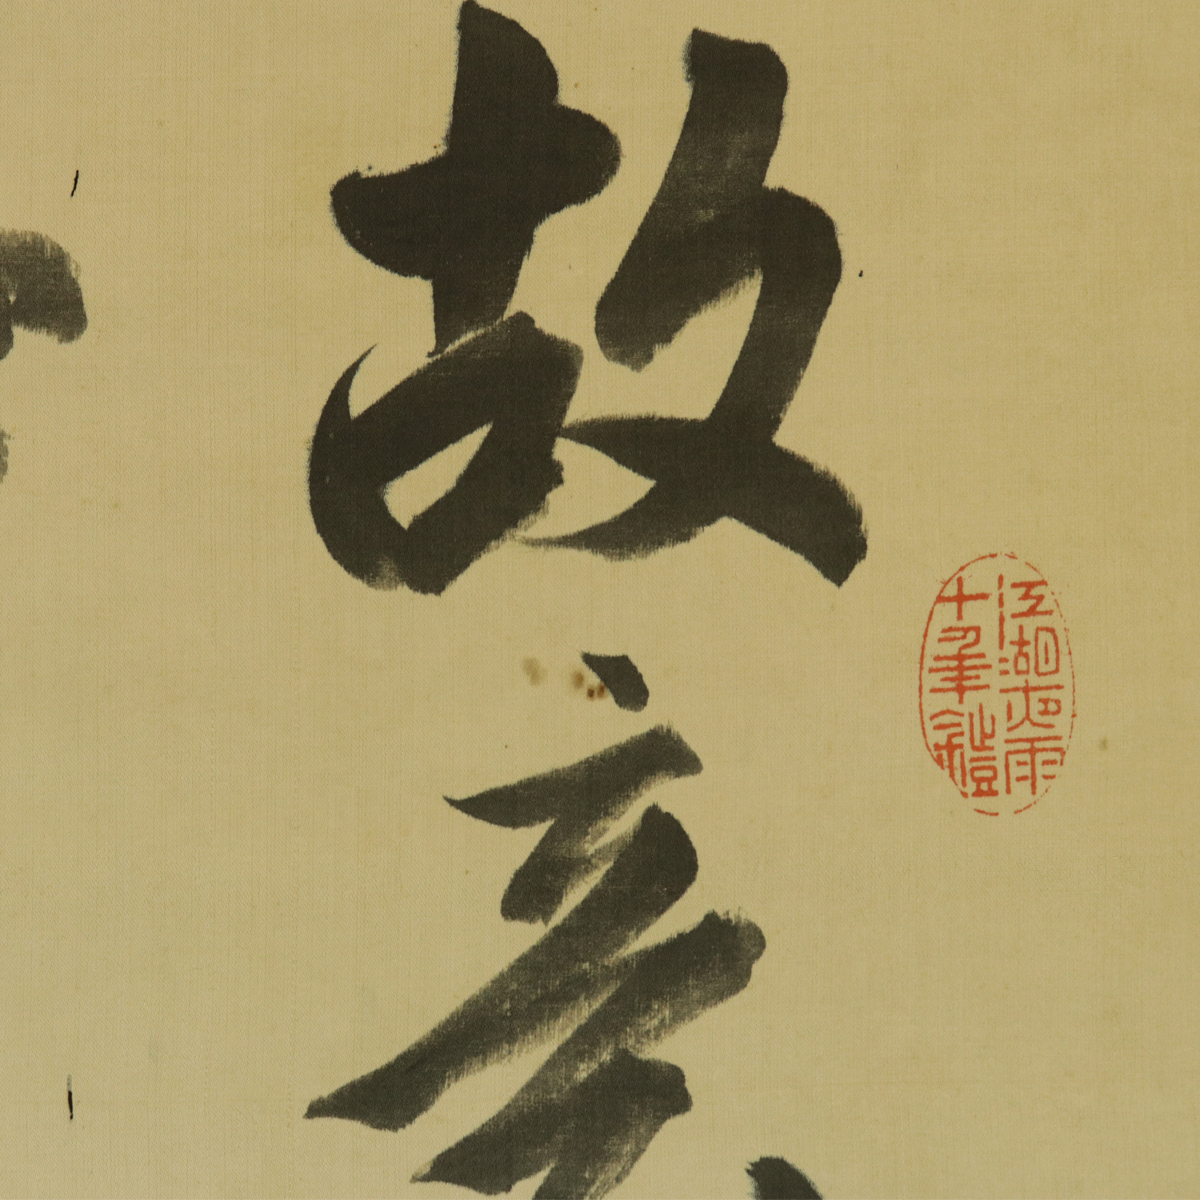 故
江湖夜雨
十年鐙